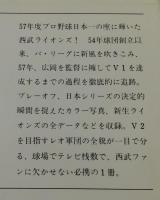 57年度プロ野球日本一の座に輝いた
西武ライオンズ！　54年球団創立以
来、パ・リーグに新風を吹きこみ、
57年、広岡を監督に擁してV1を達
成するまでの過程を徹底的に追跡。
プレーオフ、日本シリーズの決定的
瞬間を捉えたカラー写真、新生ライ
オンズの全データなどを収録。V2
を目指すレオ軍団の全貌が一目で分
る、球場でテレビ桟敷で、西武ファ
ンに欠かせない必携の1冊。